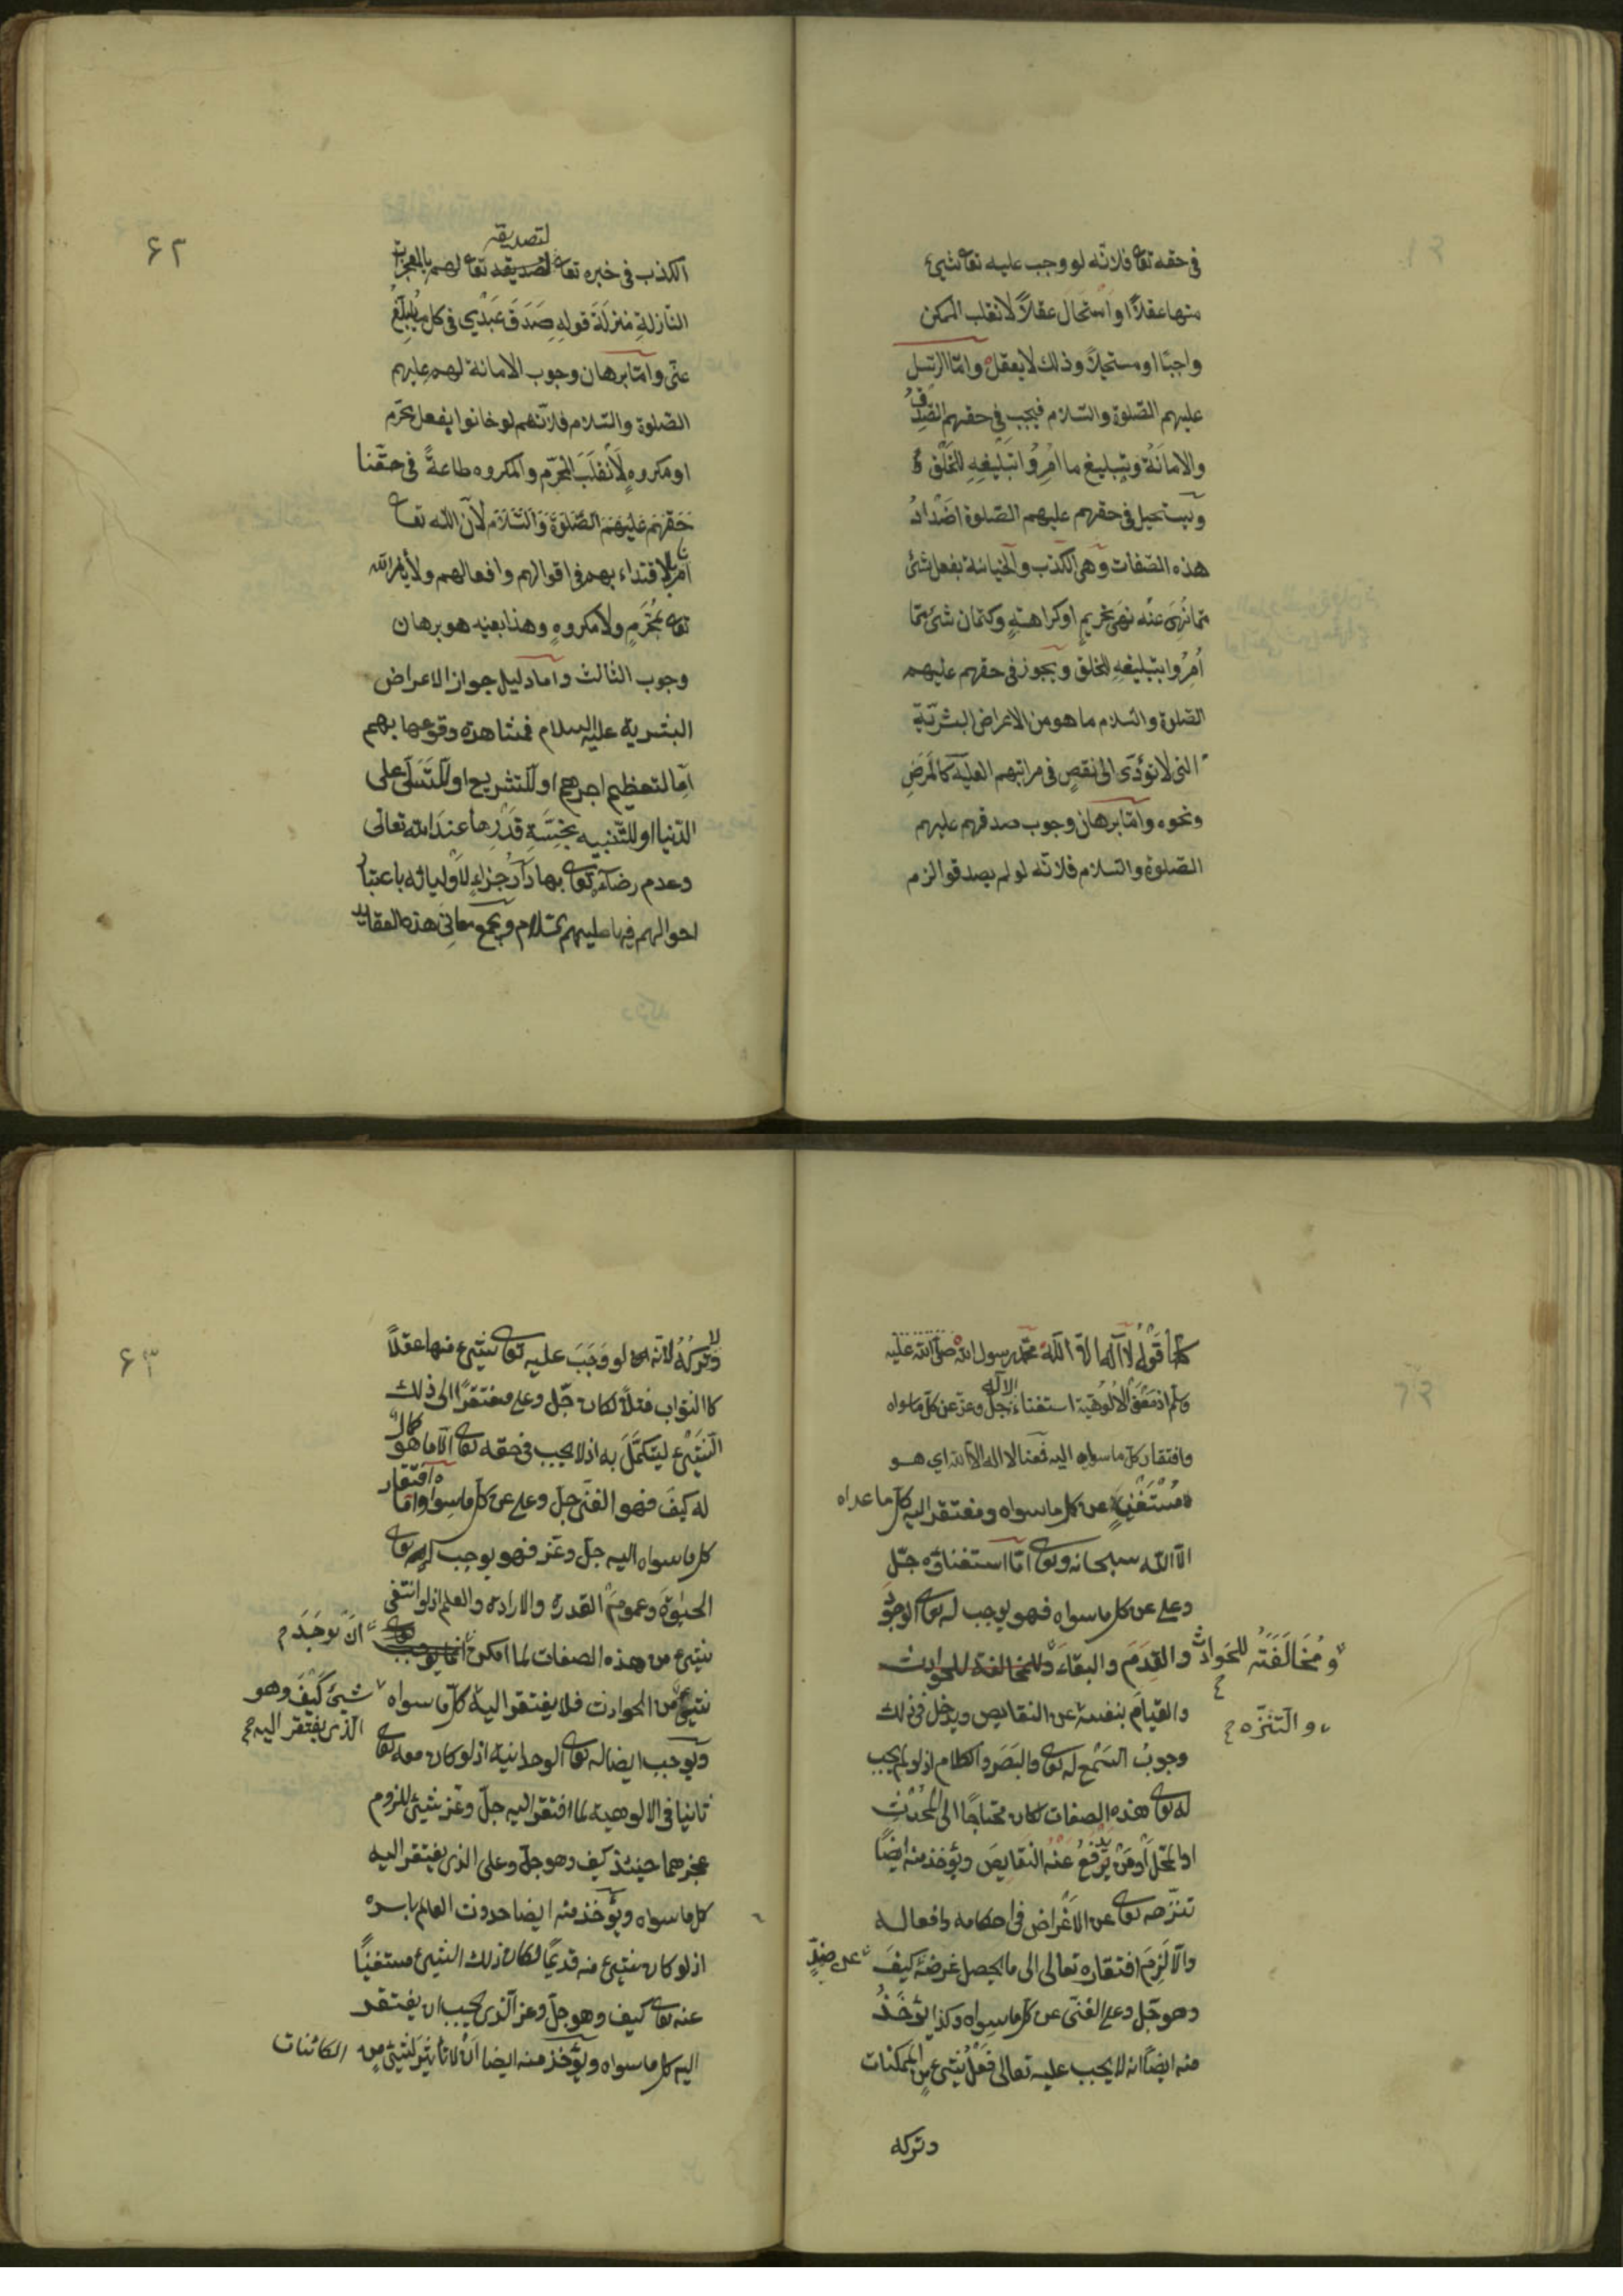 في حقه تعا فلانه لو وجب عليه تعا شيئ
منها عقلاً او استحال عقلاً لانقلب الممكن
واجبا او مستحيلاً وذلك لا يعقل واما الرسل
عليهم الصلوة والسلام فيجب في حقهم الصدق
والامانة وتبليغ ما امروا بتبليغه للخلق
ويستحيل في حقهم عليهم الصلوة اضداد
هذه الصفات وهي الكذب والخيانة بفعل شئ
مما نهى عنه نهى تحريم او كراهة وكتمان شئ مما
أمروا بتبليغه للخلق ويجوز في حقهم عليهم
الصلوة والسلام ما هو من الاعراض البشرية
التى لا تؤدى الى نقص في مراتبهم العلية كالمرض
ونحوه واما برهان وجوب صدقهم عليهم
الصلوة والسلام فلانه لو لم يصدقوا لزم
٦٢
لتصديقه
الكذب في خبره تعا لتصديقه تعا لهم بالمعجزات
النازلة منزلة قوله صدق عبدي في كل ما يبلغ
عنى واما برهان وجوب الامانة لهم عليهم
الصلوة والسلام فلانهم لو خانوا بفعل محرم
او مكروه لانقلب المحرم والمكروه طاعة في حقنا
حقهم عليهم الصلوة والسلام لان الله تعا
امر بالاقتداء بهم في اقوالهم وافعالهم ولا يأمر الله
تعا بمحرم ولا مكروه وهذا بعينه هو برهان
وجوب الثالث واما دليل جواز الاعراض
البشرية عليه السلام فمشاهدة وقوعها بهم
اما لتعظيم اجرهم او للتشريع او للتسلى على
الدنيا او للتنبيه بخسة قدرها عند الله تعالى
وعدم رضائه تعا بها دار جزاء لاوليائه باعتبار
احوالهم فيها عليهم السلام ويجمع معانى هذه العقايد
كلها قول لا اله الا الله محمد رسول الله صلى الله عليه
وسلم اذ معنى الالوهية استغناء الاله جل وعز عن كل ما سواه
وافتقار كل ما سواه اليه فمعنا لا اله الا الله اي هو
مستغنى عن كل ما سواه ومفتقر اليه كل ما عداه
الا الله سبحانه وتعا اما استغناؤه جل
وعلى عن كل ما سواه فهو يوجب له تعا الوجود
والقدم والبقاء والمخالفة للحوادث
ومخالفته للحوادث
والقيام بنفسه عن النقايص ويدخل في ذلك
والتنزه
وجوب السمع له تعا والبصر والكلام اذ لو لم يجب
له تعا هذه الصفات لكان محتاجا الى المحدث
او المحل او من يدفع عنه النقايص ويؤخذ منه ايضا
تنزهه تعا عن الاغراض في احكامه وافعاله
والا لزم افتقاره تعالى الى ما يحصل غرضه كيف
وهو جل وعلى الغنى عن كل ما سواه وكذا يؤخذ
منه ايضا انه لا يجب عليه تعالى فعل شيئ من الممكنات
وتركه
٦٣
ولا تركه لانه لو وجب عليه تعا شيئ منها عقلاً
كالثواب مثلاً لكان جل وعلى مفتقرا الى ذلك
الشيئ ليتكمل به اذ لا يجب في حقه تعا الا ما هو كمال
له كيف فهو الغنى جل وعلى عن كل ما سواه واما افتقار
كل ما سواه اليه جل وعز فهو يوجب له تعا
الحيوة وعموم القدرة والارادة والعلم اذ لو انتفى
شيئ من هذه الصفات لما امكن ان يوجد
شيئ من الحوادث فلا يفتقر اليه كل ما سواه شيئ كيف وهو
الذى يفتقر اليه
ويوجب ايضا له تعا الوحدانية اذ لو كان معه تعا
ثانيا في الالوهية لما افتقر اليه جل وعز شيئ للزوم
عجزهما حينئذ كيف وهو جل وعلى الذى يفتقر اليه
كل ما سواه ويؤخذ منه ايضا حدوث العالم باسره
اذ لو كان شيئ منه قديما لكان ذلك الشيئ مستغنيا
عنه تعا كيف وهو جل وعز الذى يجب ان يفتقر
اليه كل ما سواه ويؤخذ منه ايضا ان لا تأثير لشيئ من الكائنات